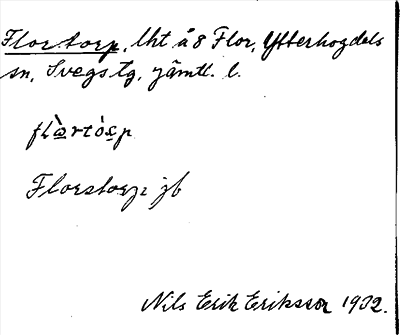 Florstorp, lht å 8 Flor, Ytterhogdals
sn, Svegs tg, Jämtl. l.
Florstorp, jb
Nils Erik Eriksson 1932.